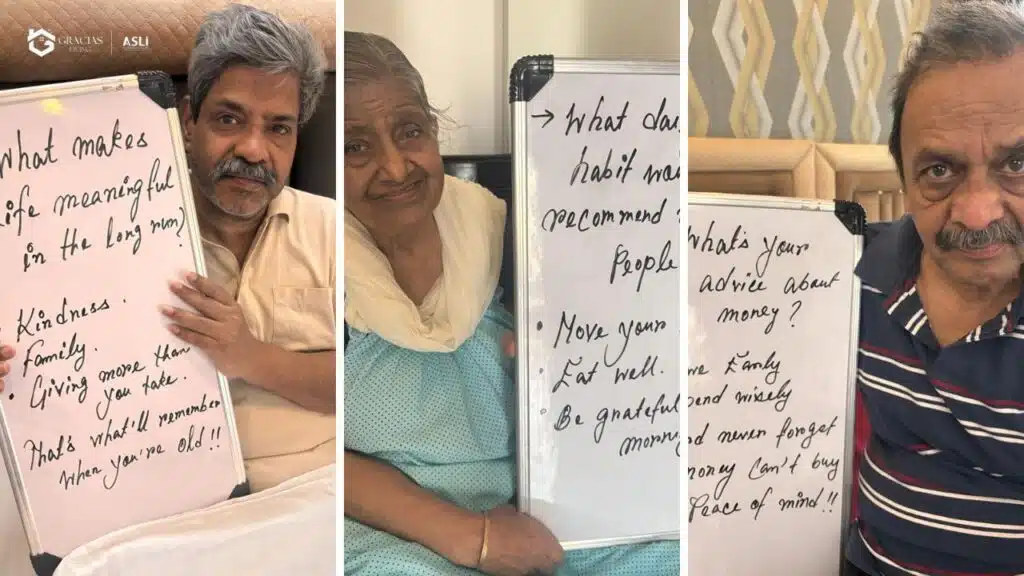 GRACIAS
LIVING
ASLI
What makes
life meaningful
in the long run?
• Kindness.
Family.
• Giving more than
you take.
That's what'll remember
when you're old!!
→ What dai
habit wou
recommend
People
• Move your
• Eat well.
• Be grateful
morn
What's your
advice about
money?
ve Early
pend wisely
nd never forget
money can't buy
Peace of mind!!